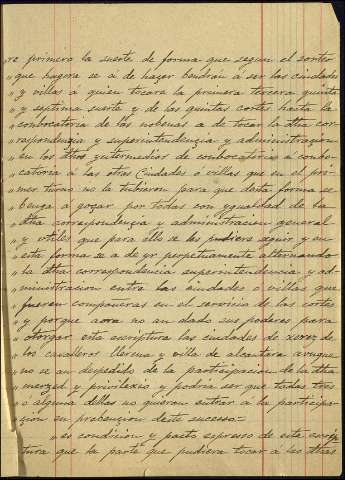 re primero la suerte de forma que segun el sorteo
" que hagora se a de hazer bendran a ser las ciudades
" y villas a quien tocara la primera tercera quinta
" y septima suerte y de las quintas cortes hasta la
" conbocatoria de las nobenas a de tocar la dha cor-
" respondencia y superintendencia y administracion
" en los dhos yntermedios de conbocatoria a conbo-
" catoria a las otras Ciudades o villas que en el pri-
" mer turno no la tubieron para que desta forma se
" benga a goçar por todas con ygualdad de la
" dha correspondencia y administracion general
" y utiles que para ello se les pudiere seguir y en
" esta forma se a de yr perpetuamente alternando
" la dha correspondencia superintendencia y ad-
" ministracion entre las ciudades o villas que
" fueren compañeras en el servicio de las cortes
" y porque aora no an dado sus poderes para
" otorgar esta escriptura las ciudades de xerez de
" los cavalleros llerena y villa de alcantara aunque
" no se an despedido de la participacion de la dha
" merzed y privilexio y podria ser que todas tres
" o alguna dellas no quieran entrar a la participa-
" çion en prebençion deste sucesso=
" es condiçion y pacto espreso de esta escrip
" tura que la parte que pudiera tocar a las dhas